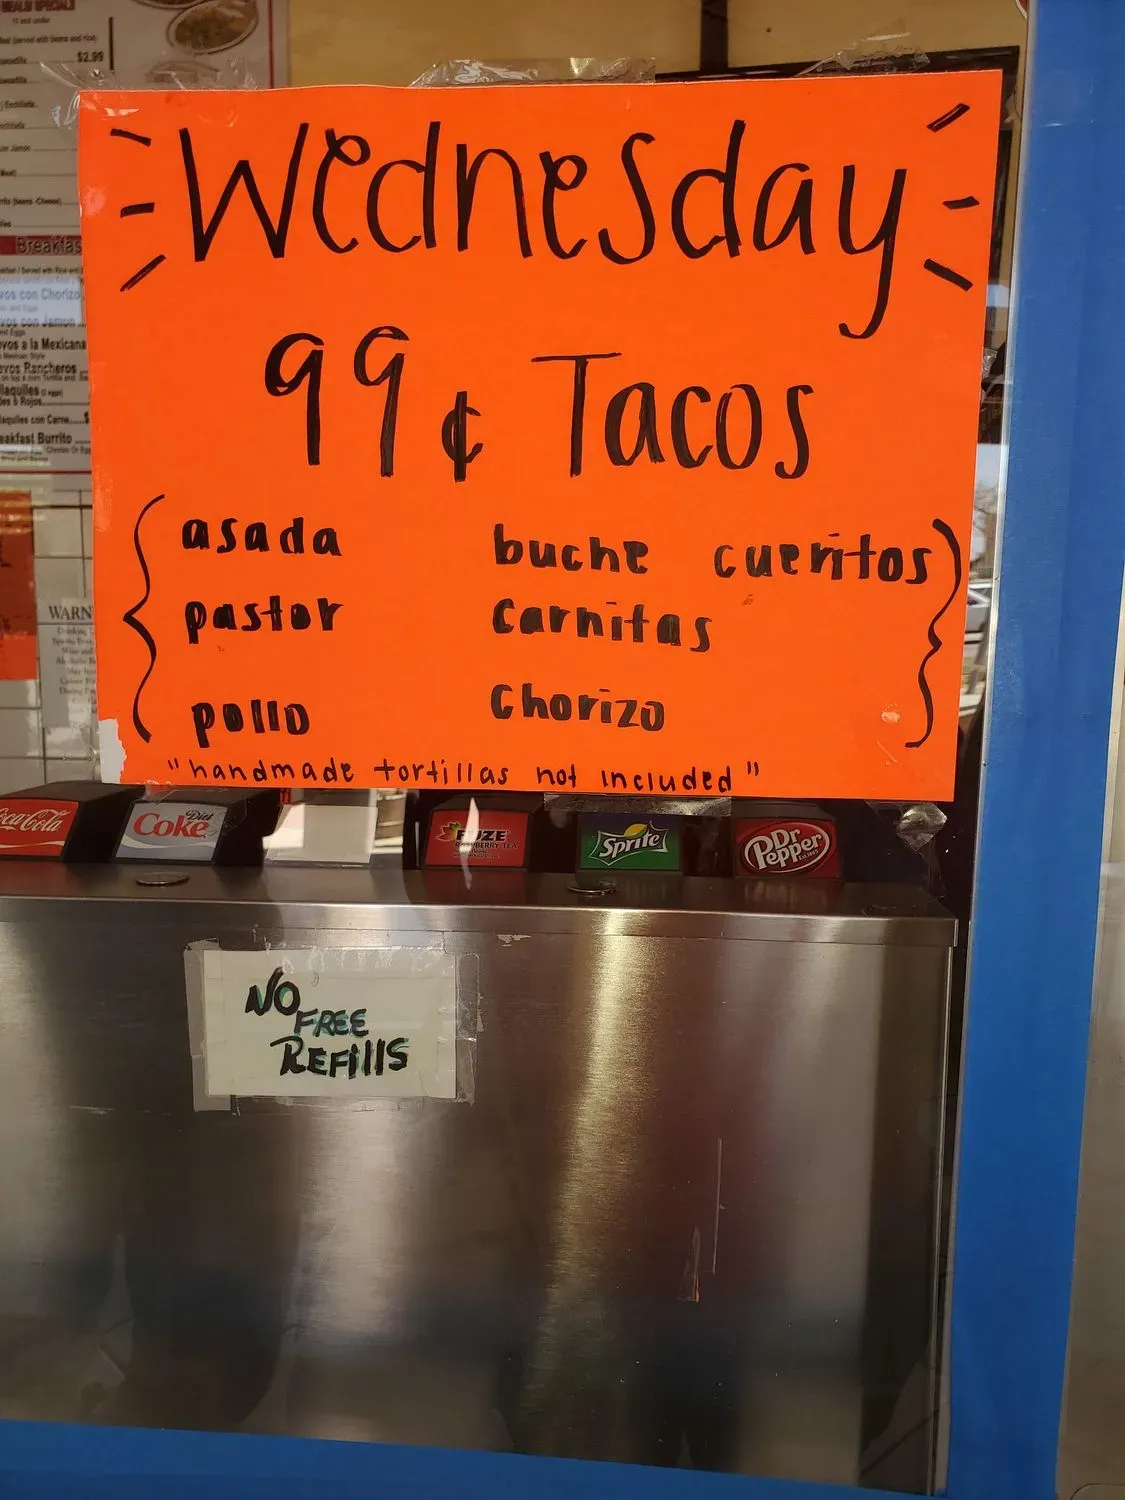 MEALS/ SPECIALS
11 and under
$2.99
Enchilada
Breakfas
vos con Chorizo
vos con Jamon
vos a la Mexicana
vos Rancheros
laquiles
laquiles con Carne
eakfast Burrito
WARN
Wednesday
99¢ Tacos
asada buche cueritos
pastor carnitas
pollo chorizo
"handmade tortillas not included"
Coca-Cola
Diet Coke
FUZE
RASPBERRY TEA
Sprite
Dr Pepper
NO
FREE
REFillS